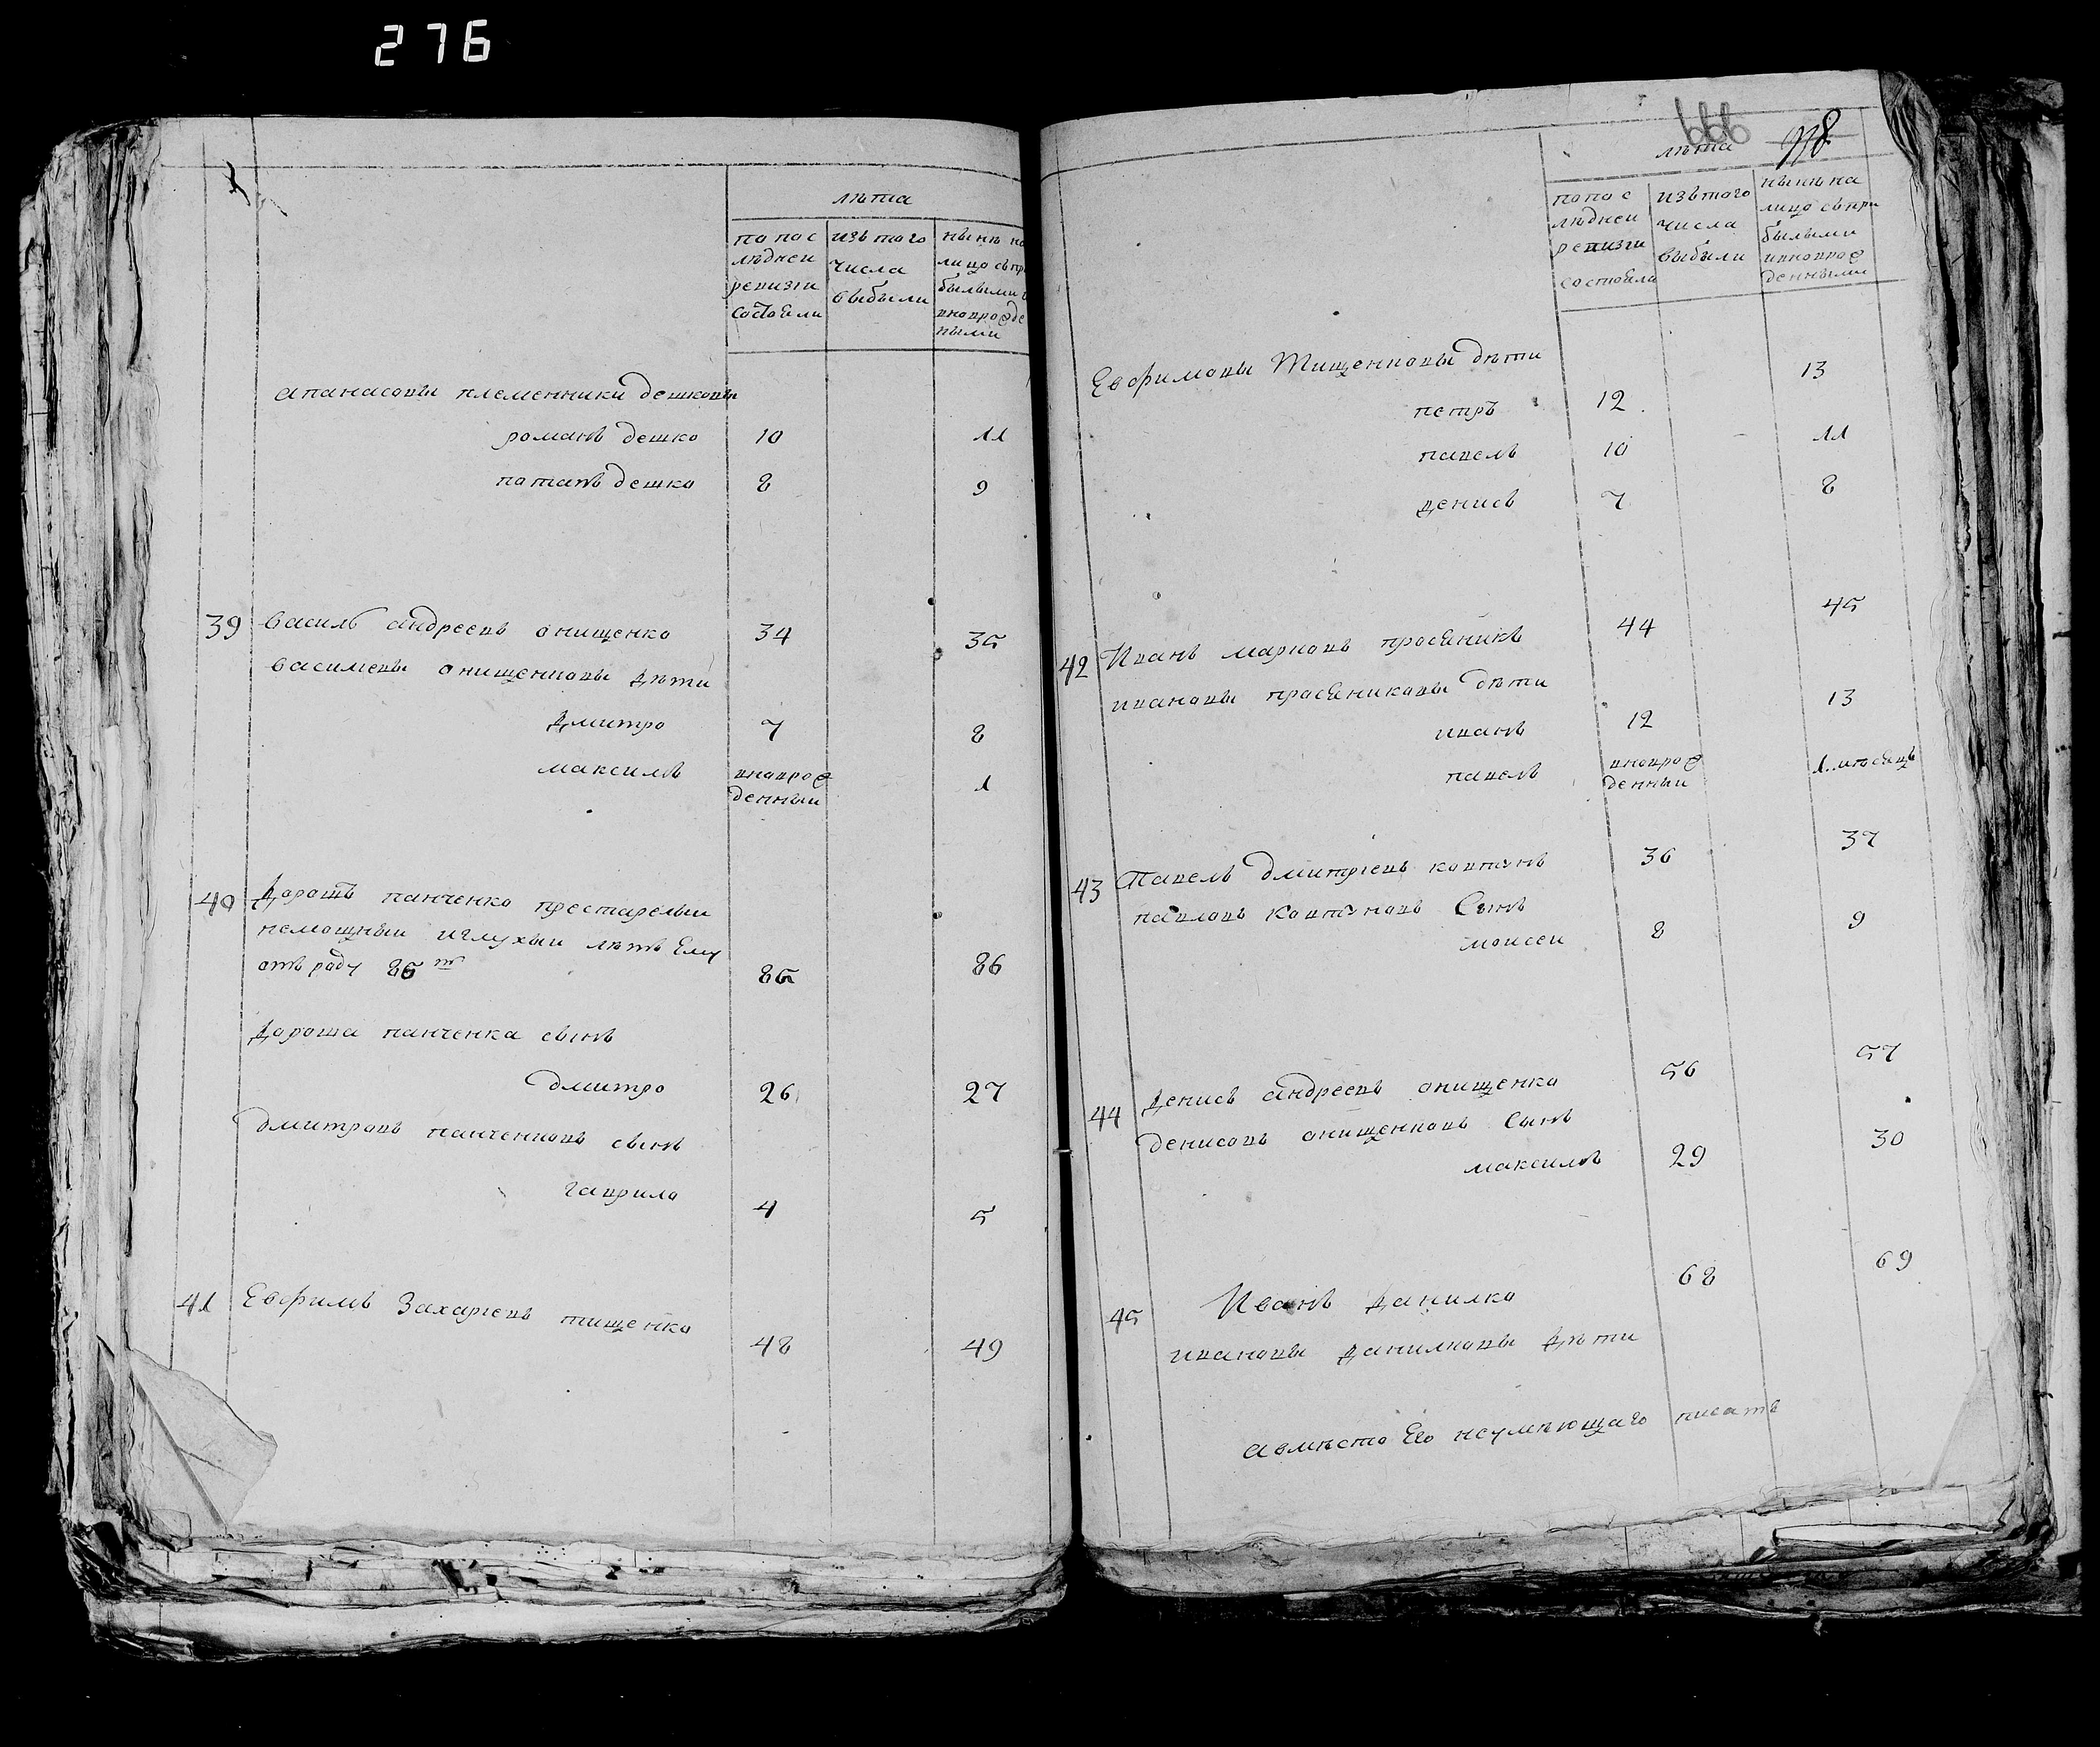 276
лѣта
попос
лѣднеи
ревизіи
состояли
изъ того
числа
выбыли
нынѣ на
лицо съпри
былыми и
вновро
де
ными
апанасовы племенники дешковы
романъ дешко 10 11
потапъ дешко 8 9
39 василь андреевъ онищенко 34 35
василевы онищенковы дѣти
дмитро 7 8
максимъ вновро 1
денныи
40 дорошъ панченко престарелыи
немощныи иглухыи лѣтъ Ему
отъ роду 86 85 86
дороша панченка сынъ
дмитро 26 27
дмитровъ панченковъ сынъ
гаврило 4 5
41 Евфимъ Захаріевъ тищенко 48 49
666 978
лѣта
попос
лѣднеи
ревизіи
состояли
изътого
числа
выбыли
нынѣ на
лицо съпри
былыми
ивновро
денными
Евфимовы Тищенковы дѣти
петръ 12 13
павелъ 10 11
денисъ 7 8
42 Иванъ марковъ просяникъ 44 45
ивановы просяниковы дѣти
иванъ 12 13
павелъ вновро 1 мѣсяцъ
денныи
43 Павелъ дмитріевъ ковтунъ 36 37
павловъ Ковтуновъ Сынъ
моисеи 8 9
44 денисъ андреевъ онищенко 56 57
денисовъ онищенковъ Сынъ
максимъ 29 30
45 Иванъ данилко 68 69
ивановы данилковы дѣти
авмѣсто Его неумѣющаго писать